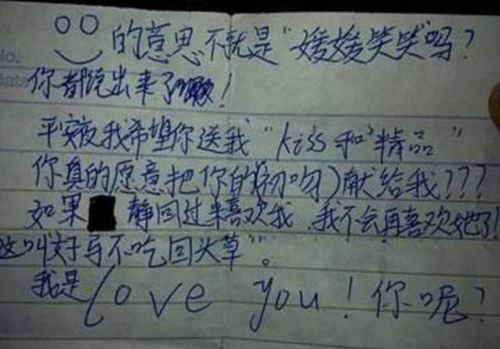 的意思不就是"媛媛笑笑"吗?
你都说出来了嗷!
平安夜我希望你送我"kiss和"精品"
你真的愿意把你的(初吻)献给我???
如果 静回过来喜欢我,我不会再喜欢她了!
这叫好马不吃回头草"。
我是love you!你呢?